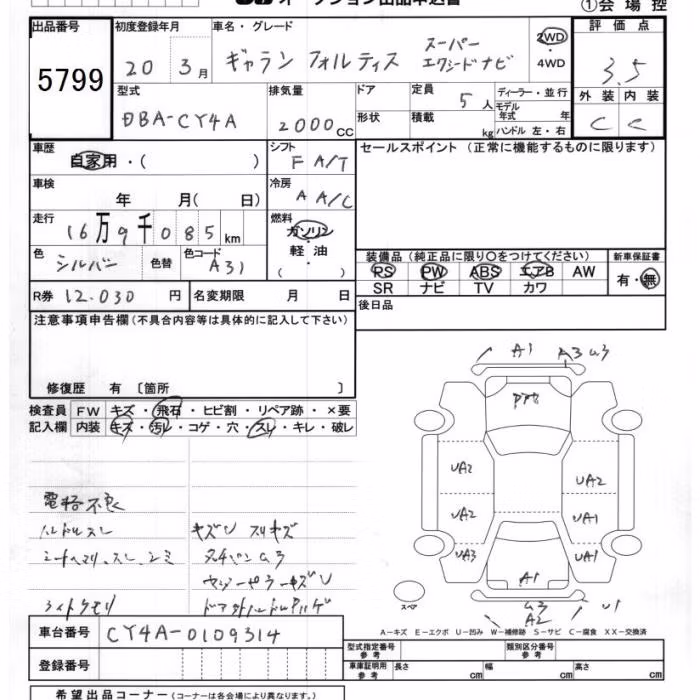 オークション出品申込書 ①会場控
出品番号 初度登録年月 車名・グレード 評価点
5799
20年 3月 ギャラン フォルティス スーパー エクシードナビ 2WD・4WD 3.5
型式 排気量 ドア 定員 ディーラー・並行 外装 内装
DBA-CY4A 2000CC 5人 モデル年式 年 C C
形状 積載 kg ハンドル 左・右
車歴 シフト セールスポイント (正常に機能するものに限ります)
自家用・( ) F A/T
車検 冷房
年 月( 日) A A/C
走行 燃料
16万9千085km ガソリン・軽油 ( )
色 シルバー 色替 色コード A31
装備品 (純正品に限り○をつけてください) 新車保証書
RS PW ABS エアB AW 有・無
SR ナビ TV カワ
R券 12.030円 名変期限 月 日 後日品
注意事項申告欄 (不具合内容等は具体的に記入して下さい)
修復歴 有 〔箇所 〕
検査員 FW キズ・飛石・ヒビ割・リペア跡・×要
記入欄 内装 キズ・汚レ・コゲ・穴・スレ・キレ・破レ
電格不良
ハンドルスレ キズU スリキズ
シートヘタリ、スレ、シミ
ライトクモリ
A1 A3
UA2 UA2
UA2 UA1
UA3 UA1
A1
A2 U1
スペア
A−キズ E−エクボ U−凹み W−補修跡 S−サビ C−腐食 XX−交換済
車台番号 CY4A-0109314
型式指定番号 参考 類別区分番号 参考
登録番号 車庫証明用 参考 長さ cm 幅 cm 高さ cm
希望出品コーナー (コーナーは各会場により異なります。)